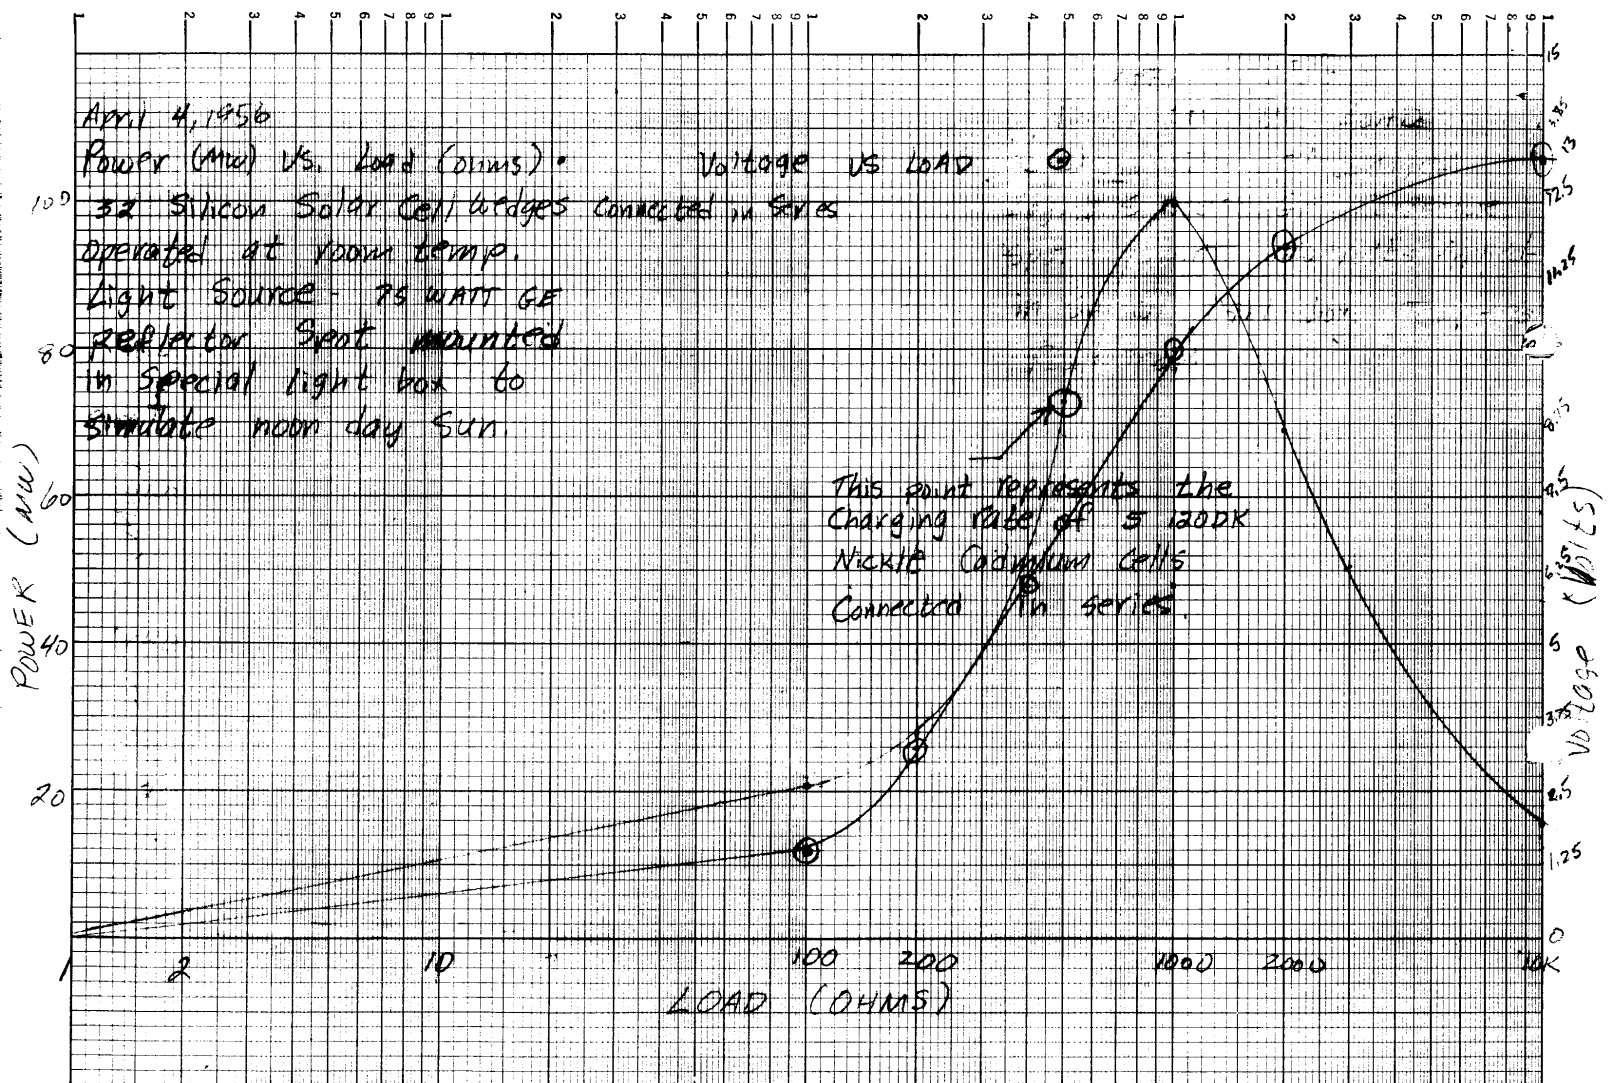 1 2 3 4 5 6 7 8 9 1 2 3 4 5 6 7 8 9 1 2 3 4 5 6 7 8 9 1 2 3 4 5 6 7 8 9 1
April 4, 1956
Power (mw) vs. Load (ohms) · Voltage vs LOAD ⊙
32 Silicon Solar Cell Wedges connected in series
operated at room temp.
Light Source - 75 WATT GE
Reflector Spot mounted
in special light box to
simulate noon day Sun.
This point represents the
Charging rate of 5 120DK
Nickle Cadmium Cells
Connected in series.
POWER (mw)
100
80
60
40
20
15
13
12.5
11.25
8.75
7.5
6.25
5
3.75
2.5
1.25
0
Voltage (Volts)
1 2 10 100 200 1000 2000 10K
LOAD (OHMS)